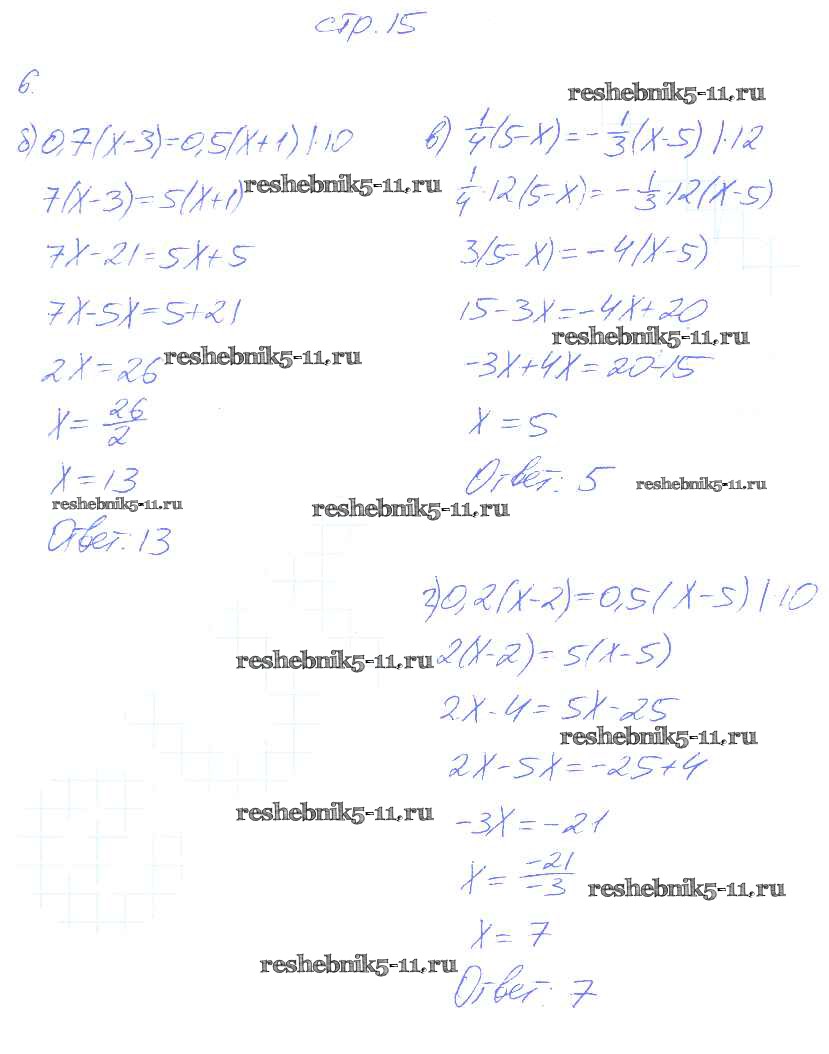 стр. 15
6.
б) 0,7(x-3)=0,5(x+1) |·10
7(x-3)=5(x+1)
7x-21=5x+5
7x-5x=5+21
2x=26
x=26/2
x=13
Ответ: 13
в) 1/4(5-x)=-1/3(x-5) |·12
1/4·12(5-x)=-1/3·12(x-5)
3(5-x)=-4(x-5)
15-3x=-4x+20
-3x+4x=20-15
x=5
Ответ: 5
г) 0,2(x-2)=0,5(x-5) |·10
2(x-2)=5(x-5)
2x-4=5x-25
2x-5x=-25+4
-3x=-21
x=-21/-3
x=7
Ответ: 7
reshebnik5-11.ru
reshebnik5-11.ru
reshebnik5-11.ru
reshebnik5-11.ru
reshebnik5-11.ru
reshebnik5-11.ru
reshebnik5-11.ru
reshebnik5-11.ru
reshebnik5-11.ru
reshebnik5-11.ru
reshebnik5-11.ru
reshebnik5-11.ru
reshebnik5-11.ru